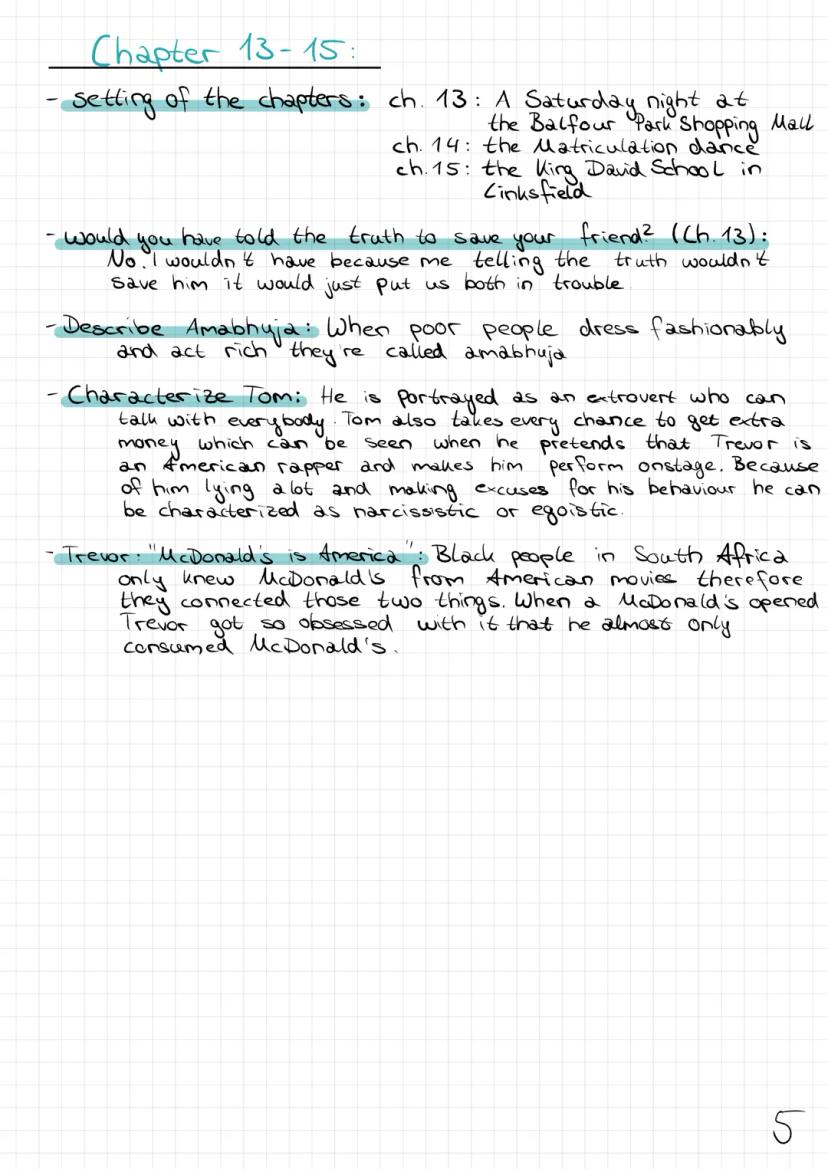 Chapter 13-15:
- setting of the chapters: ch. 13: A Saturday night at
the Balfour Park Shopping Mall
ch. 14: the Matriculation dance
ch. 15: the King David School in
Linksfield
- Would you have told the truth to save your friend? (Ch. 13):
No. I wouldn't have because me telling the truth wouldn't
save him it would just put us both in trouble.
- Describe Amabhuja: When poor people dress fashionably
and act rich they're called amabhuja
- Characterize Tom: He is portrayed as an extrovert who can
talk with everybody. Tom also takes every chance to get extra
money which can be seen when he pretends that Trevor is
an American rapper and makes him perform onstage. Because
of him lying a lot and making excuses for his behaviour he can
be characterized as narcissistic or egoistic.
- Trevor: "McDonald's is America": Black people in South Africa
only knew McDonald's from American movies therefore
they connected those two things. When a McDonald's opened
Trevor got so obsessed with it that he almost only
consumed McDonald's.
5